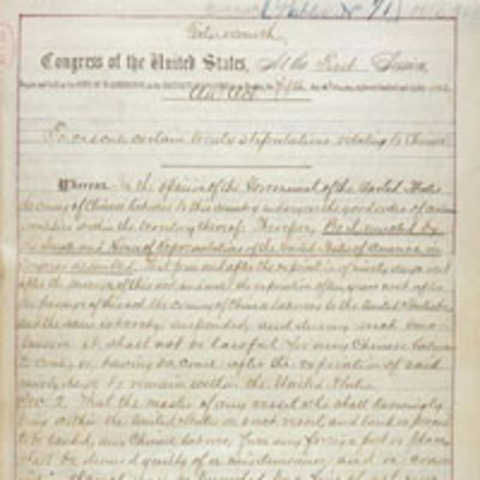 (Public No 71)
Forty-seventh
Congress of the United States, At the First Session,
An Act
To execute certain treaty stipulations relating to Chinese
Whereas, In the opinion of the Government of the United States
the coming of Chinese laborers to this country endangers the good order of certain
localities within the territory thereof: Therefore, Be it enacted by
the Senate and House of Representatives of the United States of America in
Congress assembled, That from and after the expiration of ninety days next
after the passage of this act, and until the expiration of ten years next after
the passage of this act, the coming of Chinese laborers to the United States be,
and the same is hereby, suspended; and during such sus-
pension it shall not be lawful for any Chinese laborer
to come, or having so come after the expiration of said
ninety days, to remain within the United States.
Sec. 2. That the master of any vessel who shall knowingly
bring within the United States on such vessel, and land or permit
to be landed, any Chinese laborer, from any foreign port or place,
shall be deemed guilty of a misdemeanor, and on con-